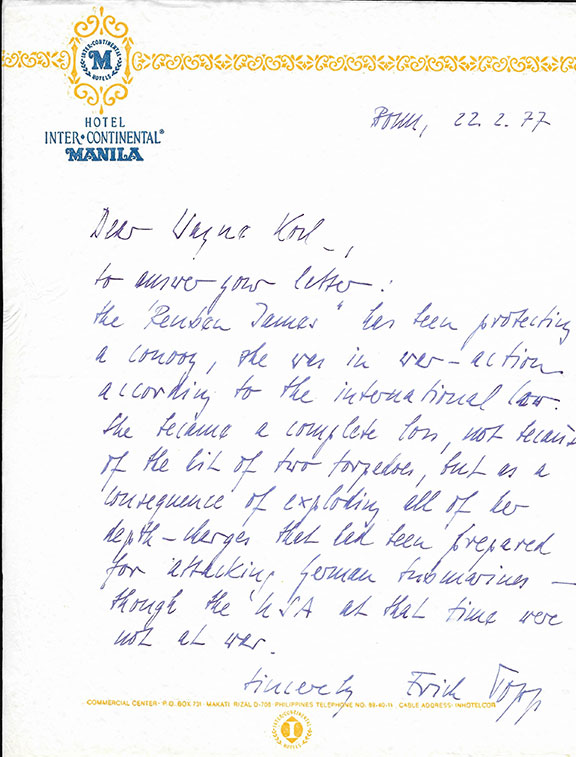 INTER·CONTINENTAL
M
HOTELS
HOTEL
INTER·CONTINENTAL®
MANILA
Bonn, 22. 2. 77
Dear Wayne
to answer your letter:
the "Reuban James" has been protecting
a convoy, she was in war-action
according to the international law.
She became a complete loss, not becaus
of the hit of two torpedoes, but as a
consequence of exploding all of her
depth-charges that had been prepared
for attacking German submarines –
though the USA at that time were
not at war.
Sincerely Erich Topp
COMMERCIAL CENTER · P.O. BOX 731 MAKATI RIZAL D-708 PHILIPPINES TELEPHONE NO. 89-40-11 CABLE ADDRESS: INHOTELCOR
INTERCONTINENTAL
I
HOTELS